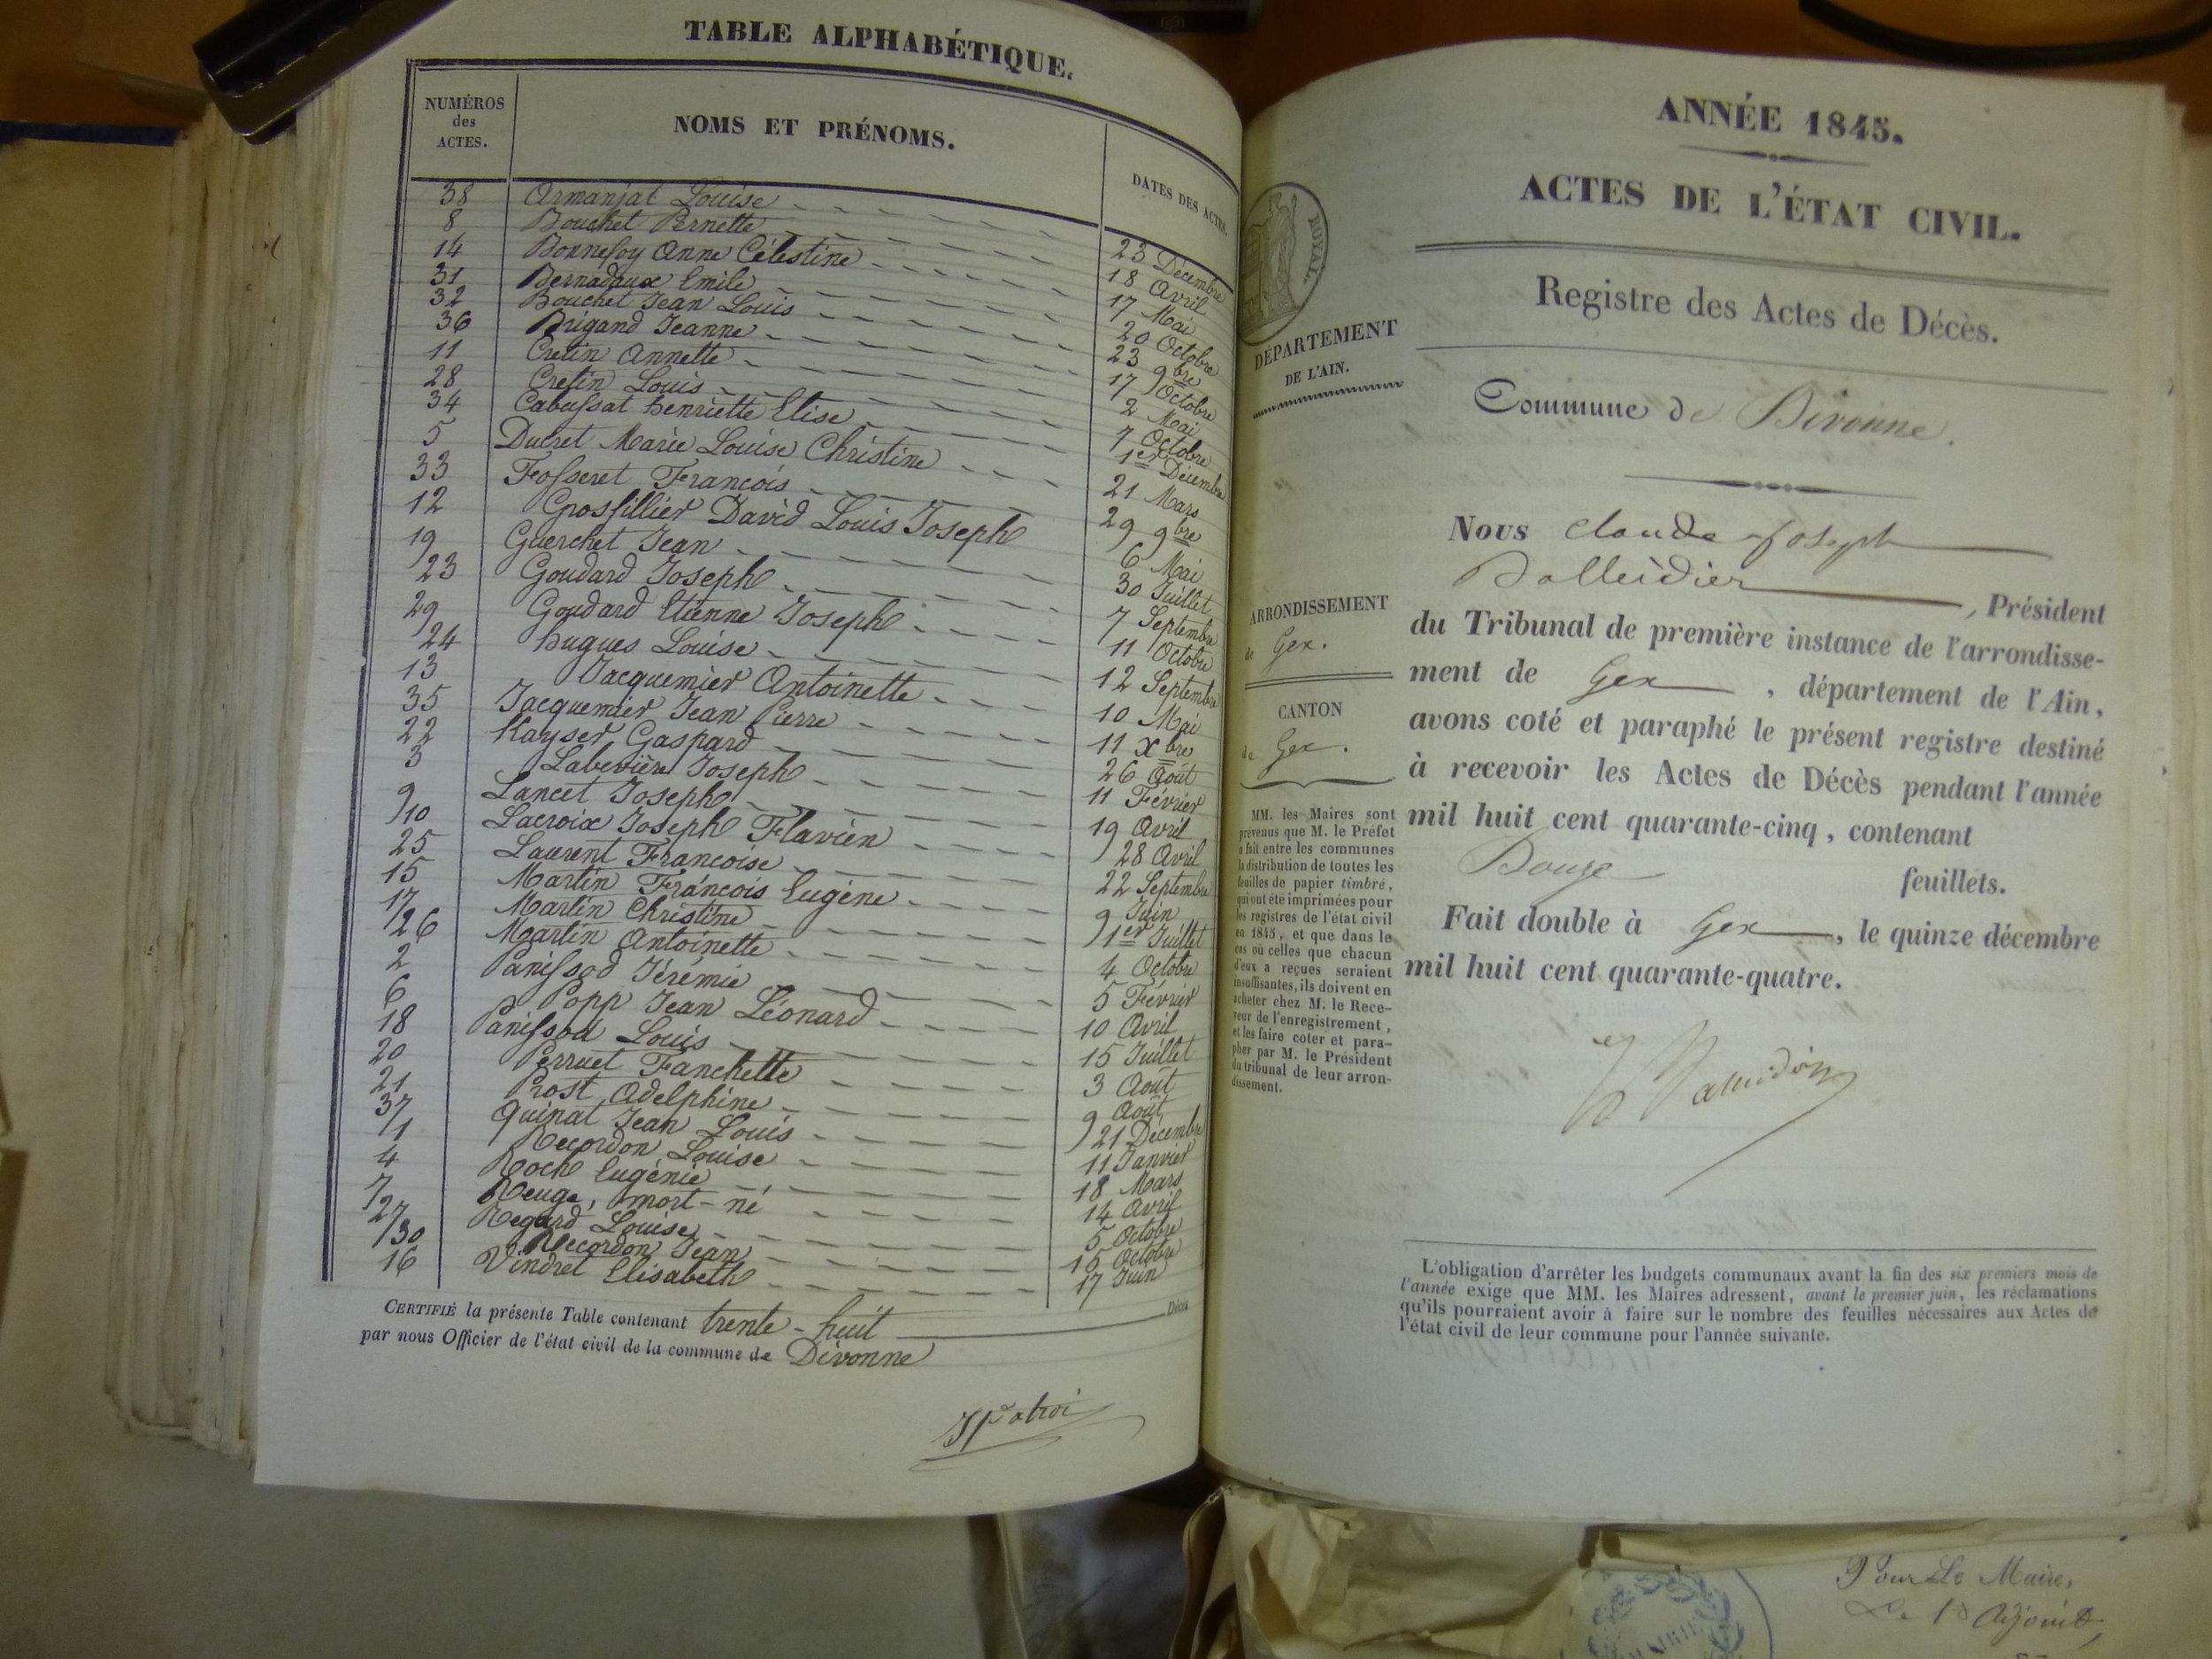 TABLE ALPHABÉTIQUE.
NUMÉROS
des
ACTES.
NOMS ET PRÉNOMS.
DATES DES ACTES.
38 Armanjat Louise 23 Décembre
8 Bouchet Pernette 18 Avril
14 Bonnefoy Anne Célestine 17 Mai
31 Bernadaux Emile 20 Octobre
32 Bouchet Jean Louis 23 9bre
36 Brigand Jeanne 17 Octobre
11 Cretin Annette 2 Mai
28 Cretin Louis 7 Octobre
34 Cabussat henriette Elise 1er Décembre
5 Ducret Marie Louise Christine 21 Mars
33 Fosseret François 29 9bre
12 Grosfillier David Louis Joseph 6 Mai
19 Guerchet Jean 30 Juillet
23 Goudard Joseph 7 Septembre
29 Goudard Etienne Joseph 11 Octobre
24 hugues Louise 12 Septembre
13 Jacquemier Antoinette 10 Mai
35 Jacquemier Jean Pierre 11 Xbre
22 Kayser Gaspard 26 Août
3 Labevière Joseph 11 Février
9 Lancet Joseph 19 Avril
10 Lacroix Joseph Flavien 28 Avril
25 Laurent Françoise 22 Septembre
15 Martin François Eugène 9 Juin
17 Martin Christine 1er Juillet
26 Martin Antoinette 4 Octobre
2 Panissod Jérémie 5 Février
6 Popp Jean Léonard 10 Avril
18 Panissod Louis 15 Juillet
20 Perruet Fanchette 3 Août
21 Prost Adelphine 9 Août
37 Quinat Jean Louis 21 Décembre
1 Recordon Louise 11 Janvier
4 Roch Eugénie 18 Mars
7 Reuge, mort-né 14 Avril
27 Regard Louise 5 Octobre
30 Recordon Jean 15 Octobre
16 Vindret Elisabeth 17 Juin
CERTIFIÉ la présente Table contenant trente-huit Décès
par nous Officier de l'état civil de la commune de Divonne
ANNÉE 1845.
ACTES DE L'ÉTAT CIVIL.
Registre des Actes de Décès.
Commune de Divonne.
ROYAL.
DÉPARTEMENT
DE L'AIN.
ARRONDISSEMENT
de Gex.
CANTON
de Gex.
MM. les Maires sont
prévenus que M. le Préfet
a fait entre les communes
la distribution de toutes les
feuilles de papier timbré,
qui ont été imprimées pour
les registres de l'état civil
en 1845, et que dans le
cas où celles que chacun
d'eux a reçues seraient
insuffisantes, ils doivent en
acheter chez M. le Rece-
veur de l'enregistrement,
et les faire coter et para-
pher par M. le Président
du tribunal de leur arron-
dissement.
Nous Claude Joseph
Balleidier, Président
du Tribunal de première instance de l'arrondisse-
ment de Gex, département de l'Ain,
avons coté et paraphé le présent registre destiné
à recevoir les Actes de Décès pendant l'année
mil huit cent quarante-cinq, contenant
Douze feuillets.
Fait double à Gex, le quinze décembre
mil huit cent quarante-quatre.
L'obligation d'arrêter les budgets communaux avant la fin des six premiers mois de
l'année exige que MM. les Maires adressent, avant le premier juin, les réclamations
qu'ils pourraient avoir à faire sur le nombre des feuilles nécessaires aux Actes de
l'état civil de leur commune pour l'année suivante.
Pour Le Maire,
Le 1er Adjoint,
MAIRIE